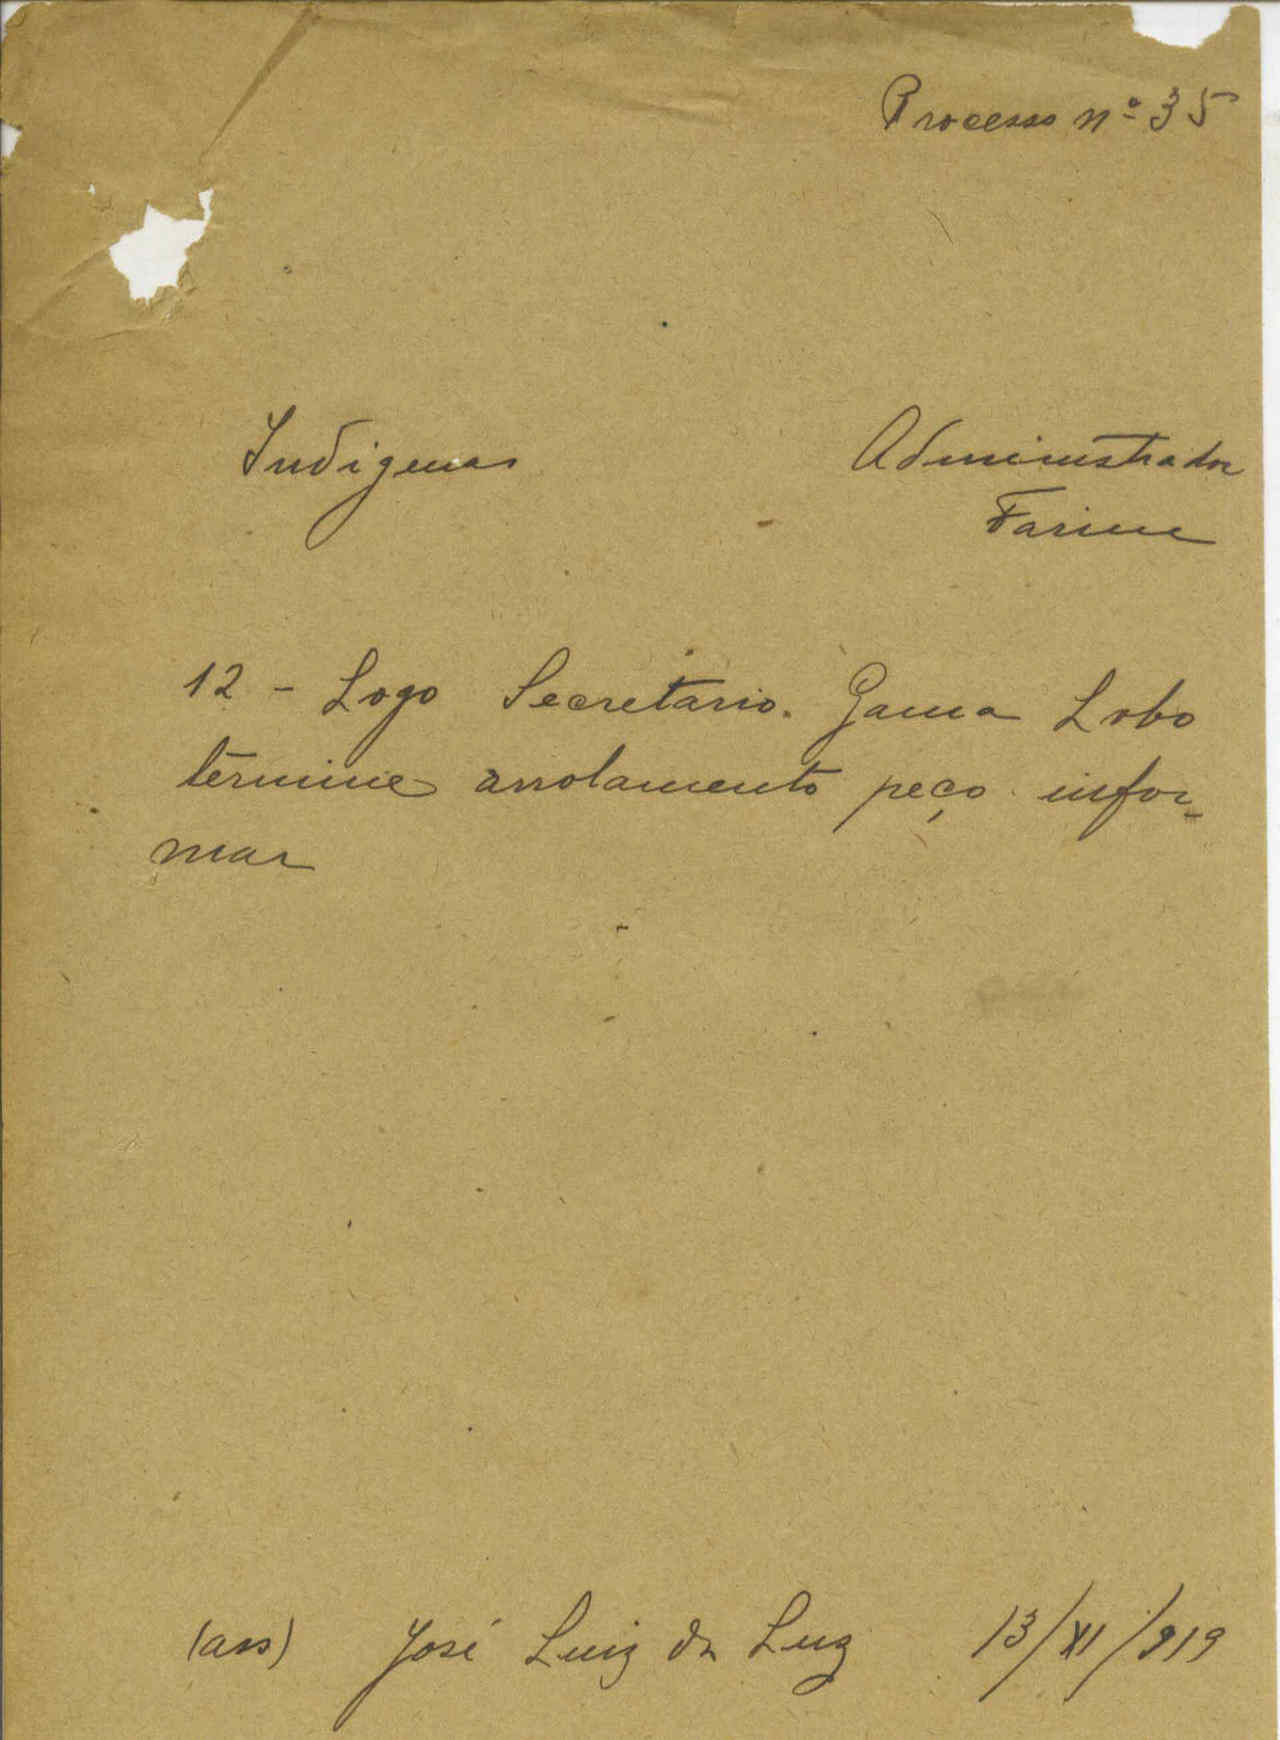 Processo nº 35
Indigenas
Administrador
Farim
12 - Logo Secretario. Gama Lobo
termine arrolamento peço infor-
mar
(ass) José Luiz da Luz 13/XI/919